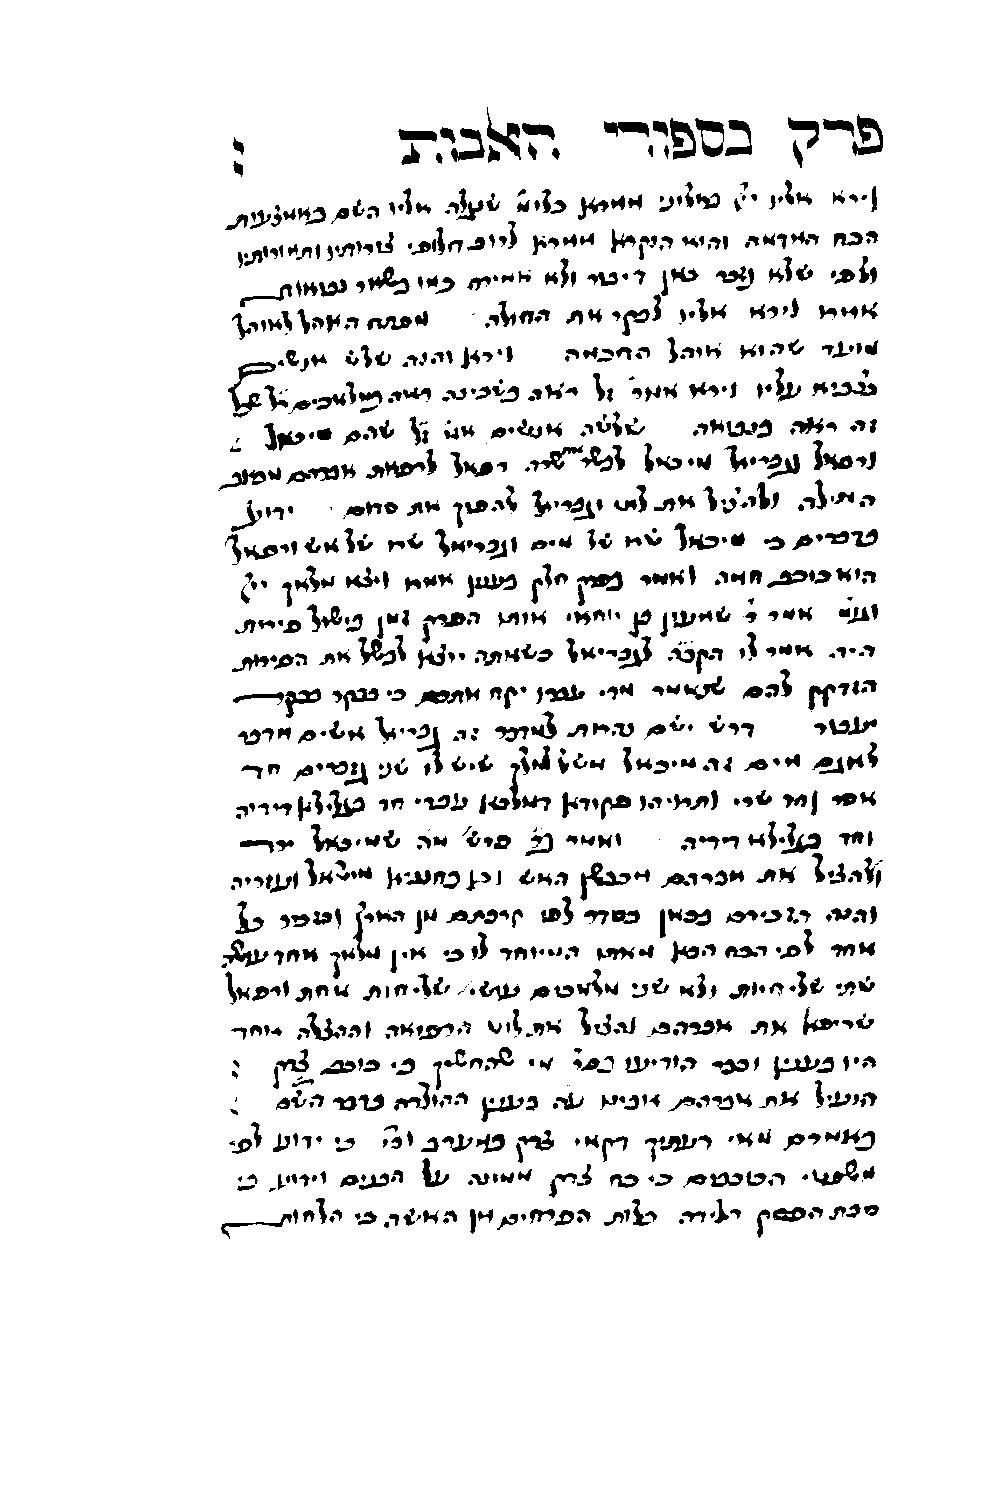 פרק בספורי האבות :
וירא אליו יי׳ באלוני ממרא כלומ׳ שעלה אליו השם באמצעות
הכח המדמה והוא הנקרא ממרא לרוב חלופי צורותיו ותמורותיו
ולפי שלא נזכר כאן דיבור ולא אמירה כמו בשאר נבואות
אמרו וירא אליו לבקר את החולה מפתח האהל לאוהל
מועד שהוא אוהל החכמה וירא והנה שלש אנשים
נצבים עליו וירא אמרו ז״ל ראה בשכינה ראה במלאכים ז״ל של
זה ראה בנבואה שלשה אנשים אמ׳ ז״ל שהם מיכאל
ורפאל וגבריאל מיכאל לבשר שרה רפאל לרפאות אברהם ממכת
המילה ולהציל את לוט וגבריאל להפוך את סדום ידוע
בדברים כי מיכאל שר של מים וגבריאל שר של אש ורפאל
הוא כוכב חמה ואמר בפרק חלק בענין אמרו ויצא מלאך יי׳
וגו׳ אמר ר׳ שמעון בן יוחאי אותו הפרק זמן בישול פירות
היה אמר לו הקב״ה לגבריאל כשאתה יוצא לבשל את הפירות
הזדקק להם שנאמר מדי עברו יקח אתכם כי בבקר בבקר
יעבור דרש ישם נהרות למדבר זה גבריאל אשים מדבר
לאגם מים זה מיכאל משל למלך שיש לו שני גזברים חד
אסר וחד שרי ותרויהו פקודא דמלכא עבדי חד בגלילא דידיה
וחד בגלילא דידיה ואמר בב״ר פרש׳ מה שמיכאל ירד
ולהציל את אברהם מכבשן האש וכן בחנניא מישאל ועזריה
והנה הזכירם בכאן כסדר לפי קרבתם מן הארץ ונזכר כל
אחד לפי הכח הבא מאתו המיוחד לו כי אין מלאך אחד עושה
שתי שליחיות ולא שני מלאכים עושי׳ שליחות אחת ורפאל
שריפא את אברהם והציל את לוט הרפואה וההצלה יחד
היו בענין וכבר הודיעו בספר מי שהחשיך כי כוכב צדק :
הועיל את אברהם אבינו ע״ה בענין ההולדה כדבר השם :
באמרם מאי דעתיך דקאי צדק במערב וכו׳ כי ידוע לפי
משפטי הכוכבים כי כח צדק ממונה על הבנים וידוע כי
סבת הפסק הלידה כלות הפרחים מן האשה כי הלחות